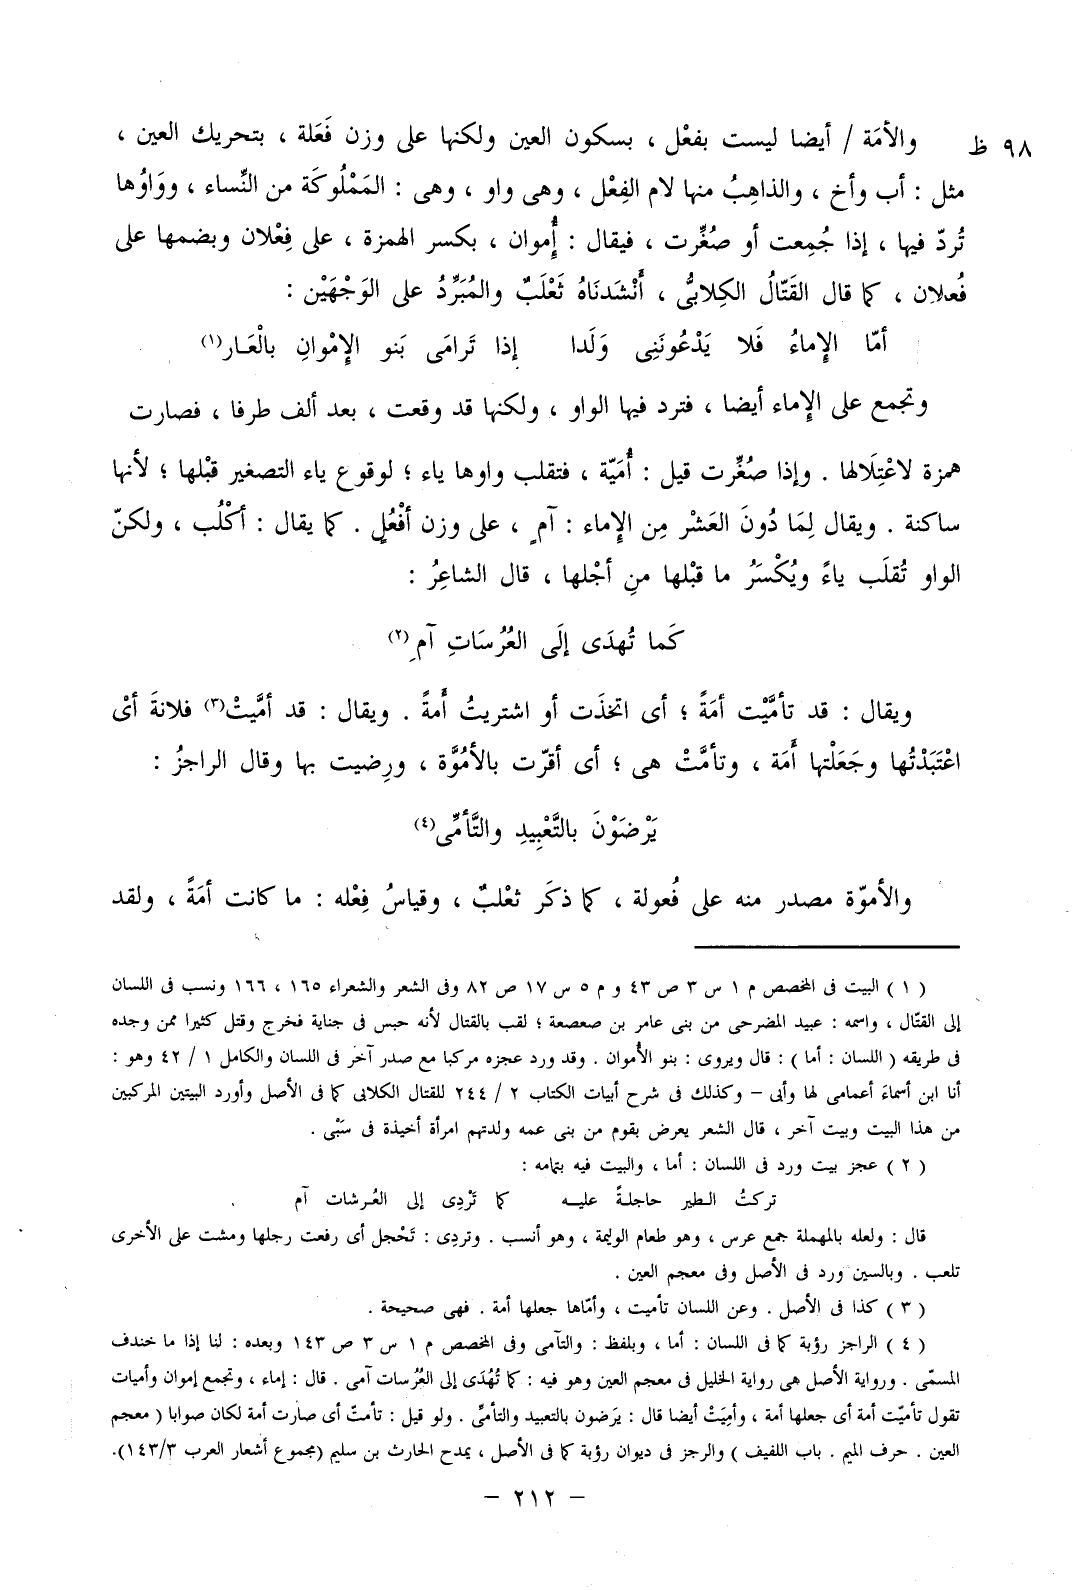 ٩٨ ظ والأمَة / أيضا ليست بفعْل ، بسكون العين ولكنها على وزن فَعَلة ، بتحريك العين ،
مثل : أب وأخ ، والذاهِبُ منها لام الفِعْل ، وهى واو ، وهى : المَمْلُوكَة من النِّساء ، ووَاوُها
تُردّ فيها ، إذا جُمِعت أو صُغِّرت ، فيقال : أُِموان ، بكسر الهمزة ، على فِعْلان وبضمها على
فُعلان ، كما قال القَتّالُ الكِلابىُّ ، أَنْشدنَاهُ ثَعْلَبٌ والمُبَرِّدُ على الوَجْهَيْن :
أمّا الإِماءُ فَلا يَدْعُونَنِى وَلَدا إذا تَرامَى بَنو الإِمْوانِ بالْعَـار(١)
وتجمع على الإِماء أيضا ، فترد فيها الواو ، ولكنها قد وقعت ، بعد ألف طرفا ، فصارت
همزة لاعْتِلَالها . وإذا صُغِّرت قيل : أُمَيّة ، فتقلب واوها ياء ؛ لوقوع ياء التصغير قبْلها ؛ لأنها
ساكنة . ويقال لِمَا دُونَ العَشْر مِن الإِماء : آمٍ ، على وزن أفْعُلٍ . كما يقال : أكْلُب ، ولكنّ
الواو تُقلَب ياءً ويُكْسَرُ ما قبْلها منِ أجْلها ، قال الشاعِرُ :
كَما تُهدَى إلَى العُرُسَاتِ آمِ(٢)
ويقال : قد تأمَّيْت أمَةً ؛ أى اتخذَت أو اشتريتُ أَمةً . ويقال : قد أمَّيتْ(٣) فلانةَ أىْ
اعْتَبَدْتُها وجَعَلْتها أَمَة ، وتأمَّتْ هى ؛ أى أقرّت بالأمُوَّة ، ورِضيت بها وقال الراجزُ :
يَرْضَوْنَ بالتَّعْبِيدِ والتَّأمِّى(٤)
والأموّة مصدر منه على فُعولة ، كما ذكَر ثعْلبٌ ، وقياسُ فِعْله : ما كانت أمَةً ، ولقد
( ١ ) البيت فى المخصص م ١ س ٣ ص ٤٣ و م ٥ س ١٧ ص ٨٢ وفى الشعر والشعراء ١٦٥ ، ١٦٦ ونسب فى اللسان
إلى القتّال ، واسمه : عبيد المضرحى من بنى عامر بن صعصعة ؛ لقب بالقتال لأنه حبس فى جناية فخرج وقتل كثيرا ممن وجده
فى طريقه ( اللسان : أما ) : قال ويروى : بنو الأُموان . وقد ورد عجزه مركبا مع صدر آخر فى اللسان والكامل ١ / ٤٢ وهو :
أنا ابن أسماءَ أعمامى لها وأبى – وكذلك فى شرح أبيات الكتاب ٢ / ٢٤٤ للقتال الكلابى كما فى الأصل وأورد البيتين المركبين
من هذا البيت وبيت آخر ، قال الشعر يعرض بقوم من بنى عمه ولدتهم امرأة أخيذة فى سَبْى .
( ٢ ) عجز بيت ورد فى اللسان : أما ، والبيت فيه بتمامه :
تركتُ الـطير حاجلـةً عليـــه كما تَرْدِى إلى العُـرشات آم
قال : ولعله بالمهملة جمع عرس ، وهو طعام الوليمة ، وهو أنسب . وتردِى : تَحْجل أى رفعت رجلها ومشت على الأخرى
تلعب . وبالسين ورد فى الأصل وفى معجم العين .
( ٣ ) كذا فى الأصل . وعن اللسان تأميت ، وأمّاها جعلها أمة . فهى صحيحة .
( ٤ ) الراجز رؤبة كما فى اللسان : أما ، وبلفظ : والتآمى وفى المخصص م ١ س ٣ ص ١٤٣ وبعده : لنا إذا ما خندف
المسمّى . ورواية الأصل هى رواية الخليل فى معجم العين وهو فيه : كما تُهْدَى إلى العُرُسات آمى . قال : إماء ، وتجمع إموان وأميات
تقول تأميّت أمة أى جعلها أمة ، وأمِيَتْ أيضا قال : يَرَضون بالتعبيد والتأمىِّ . ولو قيل : تأمتّ أى صارت أمة لكان صوابا ( معجم
العين . حرف الميم . باب اللفيف ) والرجز فى ديوان رؤبة كما فى الأصل ، يمدح الحارث بن سليم (مجموع أشعار العرب ١٤٣/٣).
– ٢١٢ –